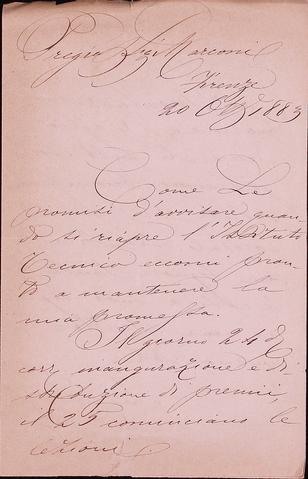 Pregio Sigr Marconi
Firenze
20 Obre 1883
Come Le
promisi d'avvisare quan
do si riapre l'Istituto
Tecnico eccomi pron
to a mantenere la
mia promessa.
Il giorno 24 d.
corr. inaugurazione e di
stribuzione di premii
il 25 cominciano le
lezioni